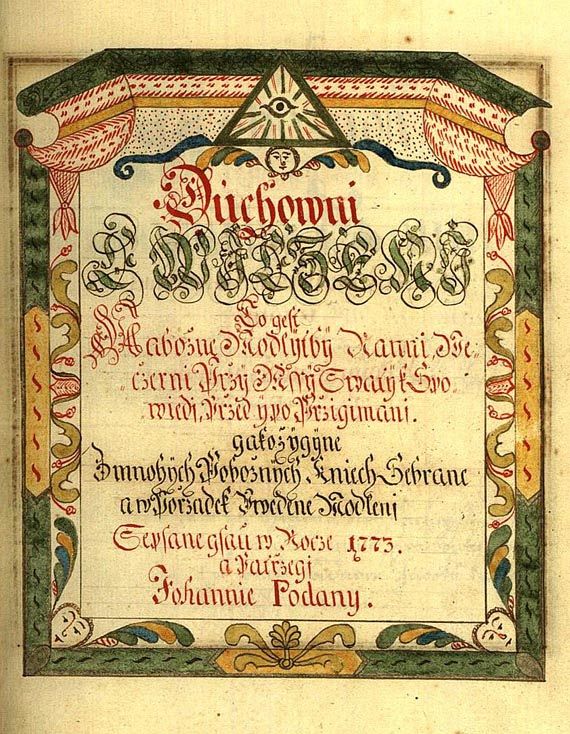 Duchowni
KWICZENI
To gest
Nabožne Modlytby Ranni, We-
czerni Przy Mssy Swaty k Spo
wiedi, Przed y po Przigimani.
gakož y gyne
Z mnohych Pobožnych Kniech Sebrane
a w Porzadek Uwedene Modleni
Sepsane gsau w Rocze 1773.
a Patrzegi
Johannie Podany.